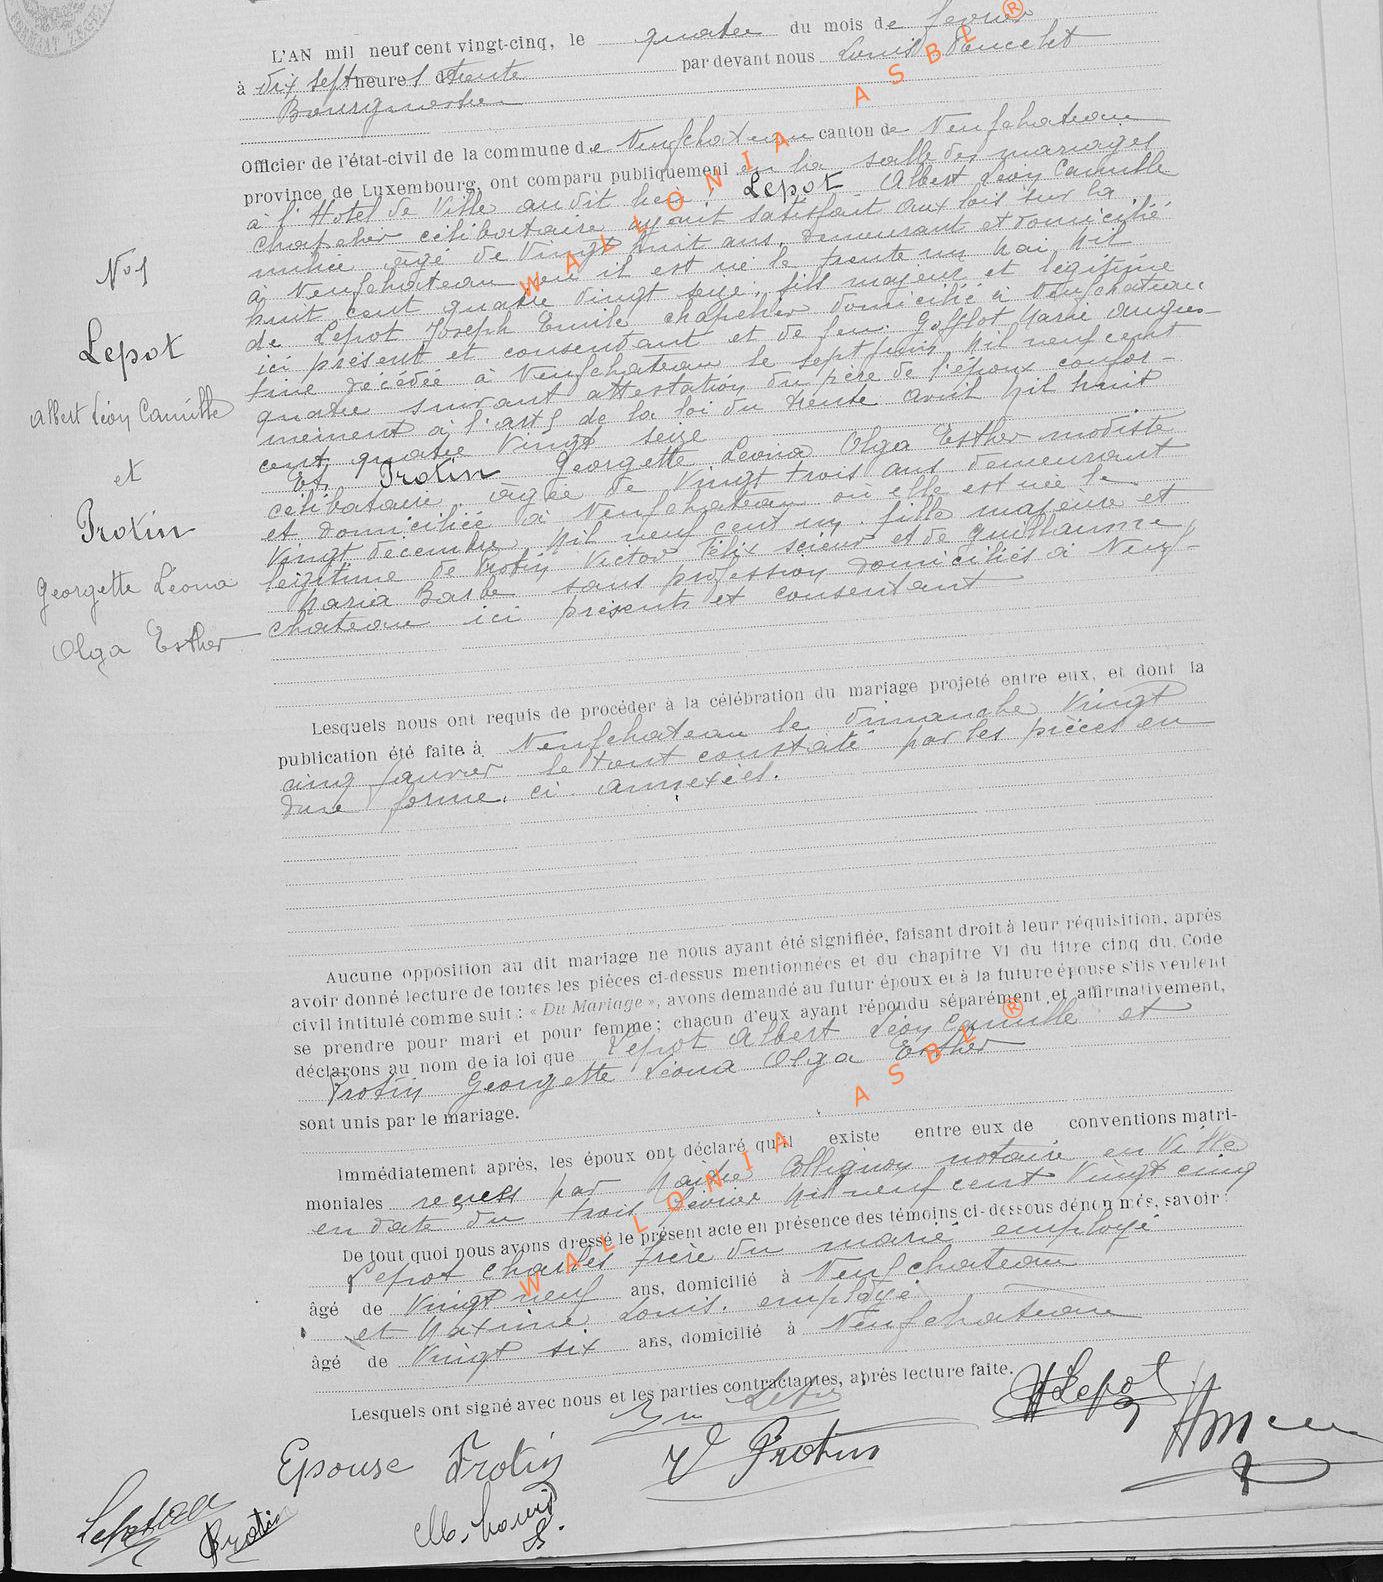 L'AN mil neuf cent vingt-cinq, le quatre du mois de février
à dix sept heures trente par devant nous Louis Poncelet
Bourgmestre
Officier de l'état-civil de la commune de Neufchateau canton de Neufchateau
province de Luxembourg, ont comparu publiquement en la salle des mariages
à l'Hotel de Ville audit lieu, Lepot Albert Léon Camille
chapelier célibataire ayant satisfait aux lois sur la
milice âgé de Vingt huit ans, demeurant et domicilié
à Neufchateau où il est né le trente un mai mil
huit cent quatre vingt seize, fils majeur et légitime
de Lepot Joseph Emile chapelier domicilié à Neufchateau
ici présent et consentant et de feu Gofflot Marie Augus-
tine décédée à Neufchateau le sept juin mil neuf cent
quatre suivant attestation du père de l'époux confor-
mément à l'art 5 de la loi du trente avril mil huit
cent quatre vingt seize
Et, Protin Georgette Léona Olga Esther modiste
célibataire âgée de Vingt trois ans demeurant
et domiciliée à Neufchateau où elle est née le
Vingt décembre mil neuf cent un, fille majeure et
légitime de Protin Victor Félix scieur et de Guillaume
Maria Barbe sans profession domiciliés à Neuf-
chateau ici présents et consentant
N° 1
Lepot
Albert Léon Camille
et
Protin
Georgette Léona
Olga Esther
Lesquels nous ont requis de procéder à la célébration du mariage projeté entre eux, et dont la
publication été faite à Neufchateau le dimanche Vingt
cinq janvier le tout constaté par les pièces en
due forme ci annexées.
Aucune opposition au dit mariage ne nous ayant été signifiée, faisant droit à leur réquisition, après
avoir donné lecture de toutes les pièces ci-dessus mentionnées et du chapitre VI du titre cinq du Code
civil intitulé comme suit : « Du Mariage », avons demandé au futur époux et à la future épouse s'ils veulent
se prendre pour mari et pour femme; chacun d'eux ayant répondu séparément et affirmativement,
déclarons au nom de la loi que Lepot Albert Léon Camille et
Protin Georgette Léona Olga Esther
sont unis par le mariage.
Immédiatement après, les époux ont déclaré qu'il existe entre eux de conventions matri-
moniales reçues par Maitre Collignon notaire en Ville
en date du trois février mil neuf cent Vingt cinq
De tout quoi nous avons dressé le présent acte en présence des témoins ci-dessous dénommés, savoir :
Lepot Charles frère du marié employé
âgé de Vingt neuf ans, domicilié à Neufchateau
et Maxime Louis, employé
âgé de Vingt six ans, domicilié à Neufchateau
Lesquels ont signé avec nous et les parties contractantes, après lecture faite.
Lepot
Epouse Protin V Protin
Protin M. Louis
WALLONIA ASBL ®
WALLONIA ASBL ®